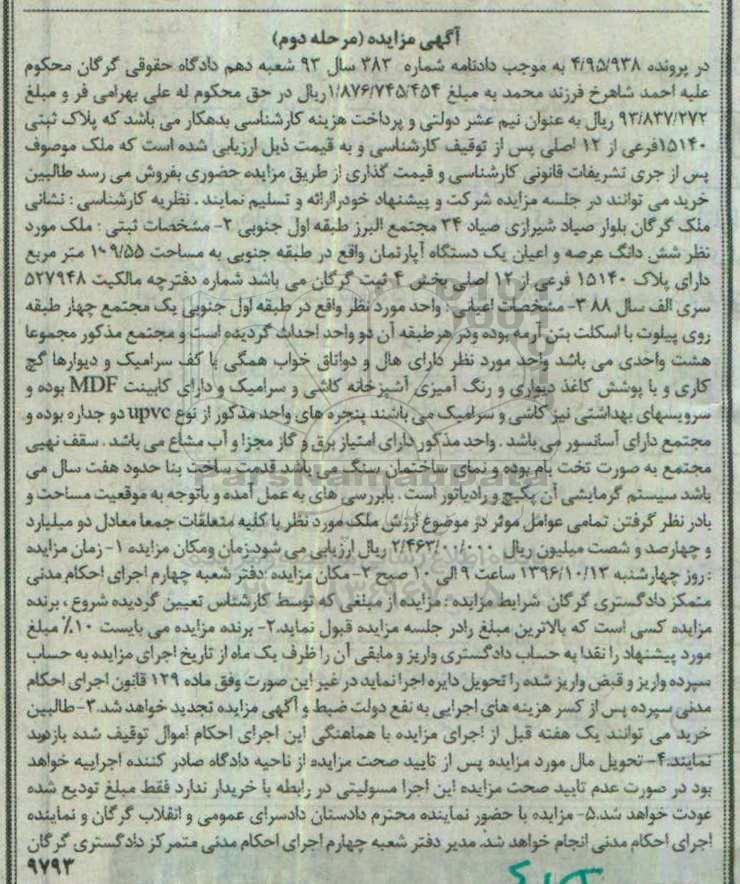 آگهی مزایده (مرحله دوم)
در پرونده ۴/۹۵/۹۳۸ به موجب دادنامه شماره ۳۸۳ سال ۹۳ شعبه دهم دادگاه حقوقی گرگان محکوم
علیه احمد شاهرخ فرزند محمد به مبلغ ۱/۸۷۶/۷۴۵/۴۵۴ریال در حق محکوم له علی بهرامی فر و مبلغ
۹۳/۸۳۷/۲۷۲ ریال به عنوان نیم عشر دولتی و پرداخت هزینه کارشناسی بدهکار می باشد که پلاک ثبتی
۱۵۱۴۰فرعی از ۱۲ اصلی پس از توقیف کارشناسی و به قیمت ذیل ارزیابی شده است که ملک موصوف
پس از جری تشریفات قانونی کارشناسی و قیمت گذاری از طریق مزایده حضوری بفروش می رسد طالبین
خرید می توانند در جلسه مزایده شرکت و پیشنهاد خودراارائه و تسلیم نمایند . نظریه کارشناسی : نشانی
ملک گرگان بلوار صیاد شیرازی صیاد ۳۴ مجتمع البرز طبقه اول جنوبی ۲- مشخصات ثبتی : ملک مورد
نظر شش دانگ عرصه و اعیان یک دستگاه آپارتمان واقع در طبقه جنوبی به مساحت ۱۰۹/۵۵ متر مربع
دارای پلاک ۱۵۱۴۰ فرعی از ۱۲ اصلی بخش ۴ ثبت گرگان می باشد شماره دفترچه مالکیت ۵۲۷۹۴۸
سری الف سال ۸۸ ۳- مشخصات اعیانی : واحد مورد نظر واقع در طبقه اول جنوبی یک مجتمع چهار طبقه
روی پیلوت با اسکلت بتن آرمه بوده ودر هرطبقه آن دو واحد احداث گردیده است و مجتمع مذکور مجموعا
هشت واحدی می باشد واحد مورد نظر دارای هال و دواتاق خواب همگی با کف سرامیک و دیوارها گچ
کاری و با پوشش کاغذ دیواری و رنگ آمیزی آشپزخانه کاشی و سرامیک و دارای کابینت MDF بوده و
سرویسهای بهداشتی نیز کاشی و سرامیک می باشند پنجره های واحد مذکور از نوع upvc دو جداره بوده و
مجتمع دارای آسانسور می باشد . واحد مذکور دارای امتیاز برق و گاز مجزا و آب مشاع می باشد . سقف نهیی
مجتمع به صورت تخت بام بوده و نمای ساختمان سنگ می باشد قدمت ساخت بنا حدود هفت سال می
باشد سیستم گرمایشی آن پکیج و رادیاتور است . بابررسی های به عمل آمده و باتوجه به موقعیت مساحت و
بادر نظر گرفتن تمامی عوامل موثر در موضوع ارزش ملک مورد نظر با کلیه متعلقات جمعا معادل دو میلیارد
و چهارصد و شصت میلیون ریال ارزیابی می شودزمان ومکان مزایده ۱- زمان مزایده
: روز چهارشنبه ۱۳۹۶/۱۰/۱۳ ساعت ۹ الی ۱۰ صبح ۲- مکان مزایده :دفتر شعبه چهارم اجرای احکام مدنی
متمکز دادگستری گرگان شرایط مزایده : مزایده از مبلغی که توسط کارشناس تعیین گردیده شروع ، برنده
مزایده کسی است که بالاترین مبلغ رادر جلسه مزایده قبول نماید.۲- برنده مزایده می بایست ۱۰٪ مبلغ
مورد پیشنهاد را نقدا به حساب دادگستری واریز و مابقی آن را ظرف یک ماه از تاریخ اجرای مزایده به حساب
سپرده واریز و قبض واریز شده را تحویل دایره اجرا نماید در غیر این صورت وفق ماده ۱۲۹ قانون اجرای احکام
مدنی سپرده پس از کسر هزینه های اجرایی به نفع دولت ضبط و آگهی مزایده تجدید خواهد شد.۳-طالبین
خرید می توانند یک هفته قبل از اجرای مزایده با هماهنگی این اجرای احکام اموال توقیف شده بازدید
نمایند.۴- تحویل مال مورد مزایده پس از تایید صحت مزایده از ناحیه دادگاه صادر کننده اجراییه خواهد
بود در صورت عدم تایید صحت مزایده این اجرا مسولیتی در رابطه با خریدار ندارد فقط مبلغ تودیع شده
عودت خواهد شد.۵- مزایده با حضور نماینده محترم دادستان دادسرای عمومی و انقلاب گرگان و نماینده
اجرای احکام مدنی انجام خواهد شد. مدیر دفتر شعبه چهارم اجرای احکام مدنی متمرکز دادگستری گرگان
۹۷۹۳
ParsNamadData